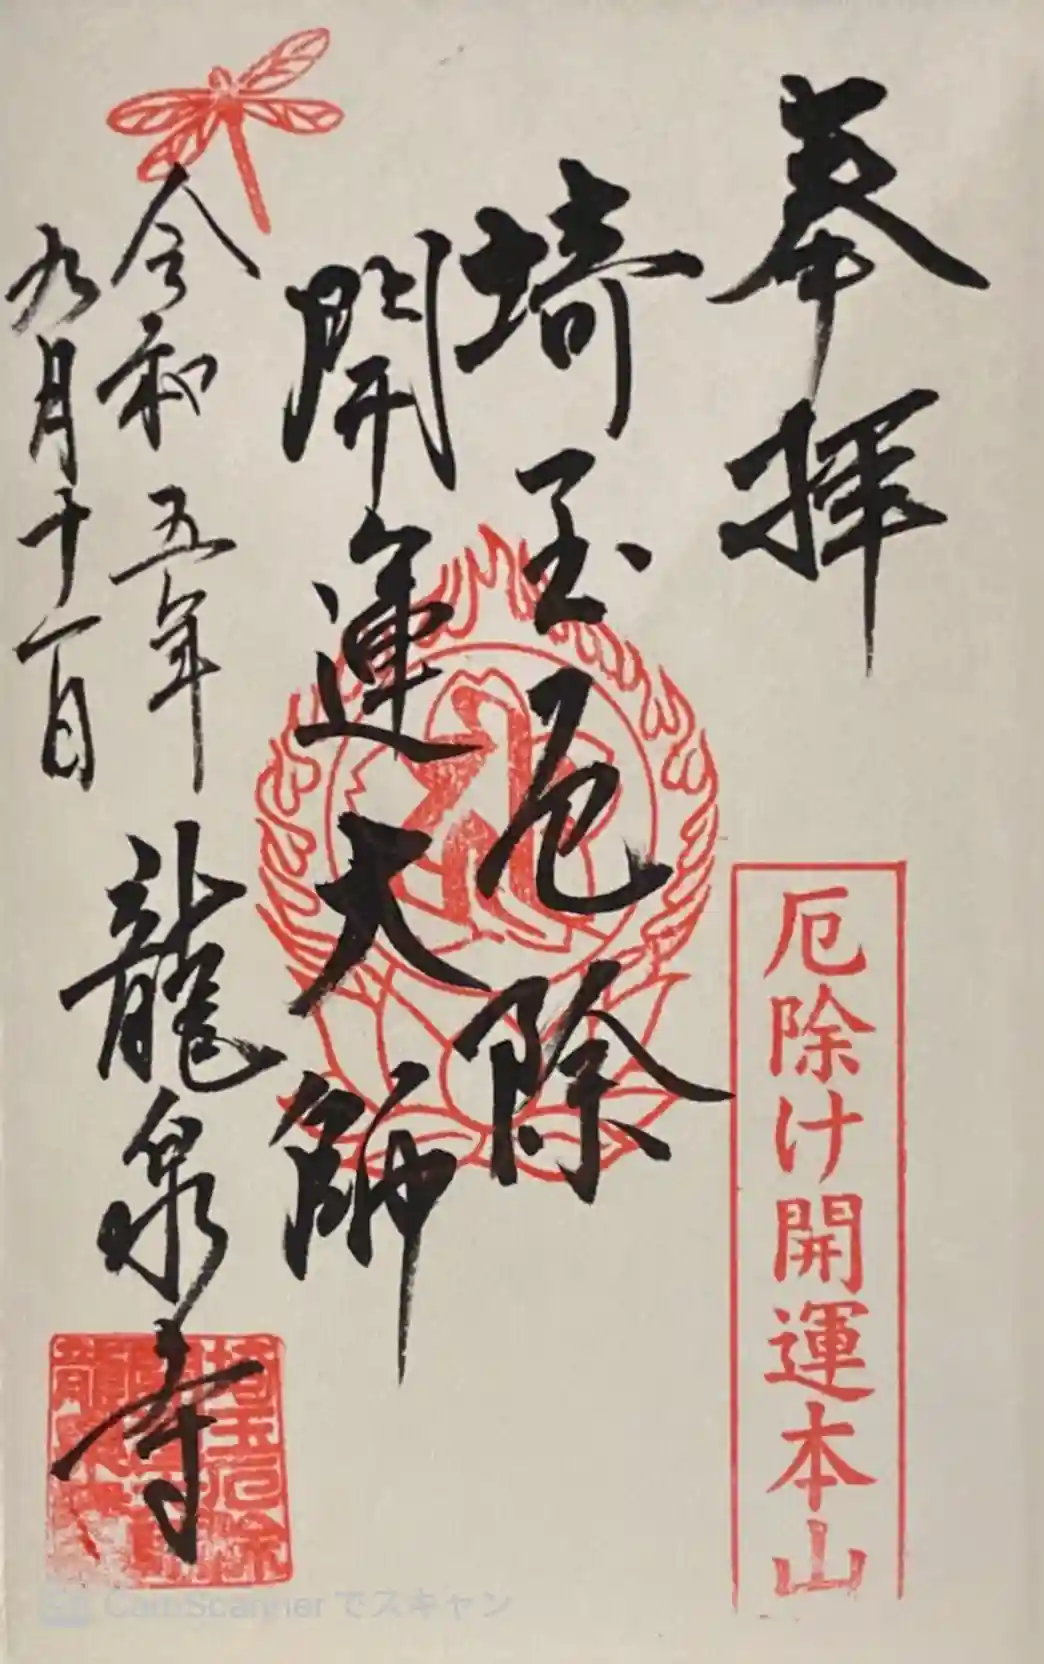 奉拝
厄除け開運本山
埼玉厄除
開運大師
令和五年
九月十一日
龍泉寺
CamScanner でスキャン